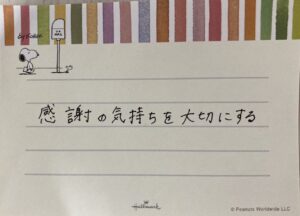 感謝の気持ちを大切にする
Hallmark
© Peanuts Worldwide LLC